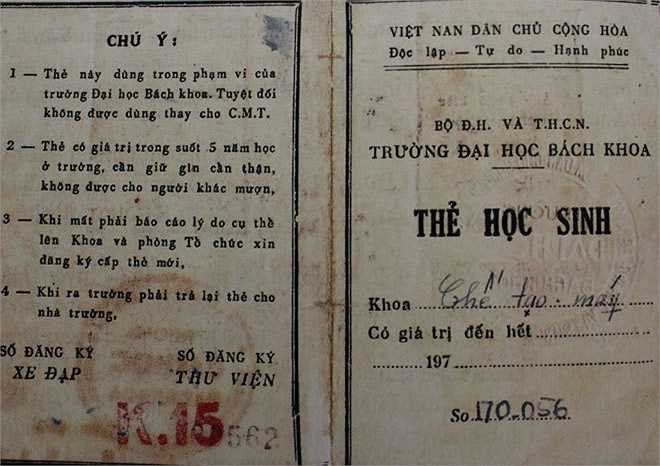 CHÚ Ý:
1 — Thẻ này dùng trong phạm vi của
trường Đại học Bách khoa. Tuyệt đối
không được dùng thay cho C.M.T.
2 — Thẻ có giá trị trong suốt 5 năm học
ở trường, cần giữ gìn cẩn thận,
không được cho người khác mượn,
3 — Khi mất phải báo cáo lý do cụ thể
lên Khoa và phòng Tổ chức xin
đăng ký cấp thẻ mới,
4 — Khi ra trường phải trả lại thẻ cho
nhà trường,
SỐ ĐĂNG KÝ
XE ĐẠP
SỐ ĐĂNG KÝ
THƯ VIỆN
K.15 562
VIỆT NAN DÂN CHỦ CỘNG HÒA
Độc lập — Tự do — Hạnh phúc
BỘ Đ.H. VÀ T.H.C.N.
TRƯỜNG ĐẠI HỌC BÁCH KHOA
THẺ HỌC SINH
Khoa Chế tạo máy
Có giá trị đến hết
197
Số 170.056